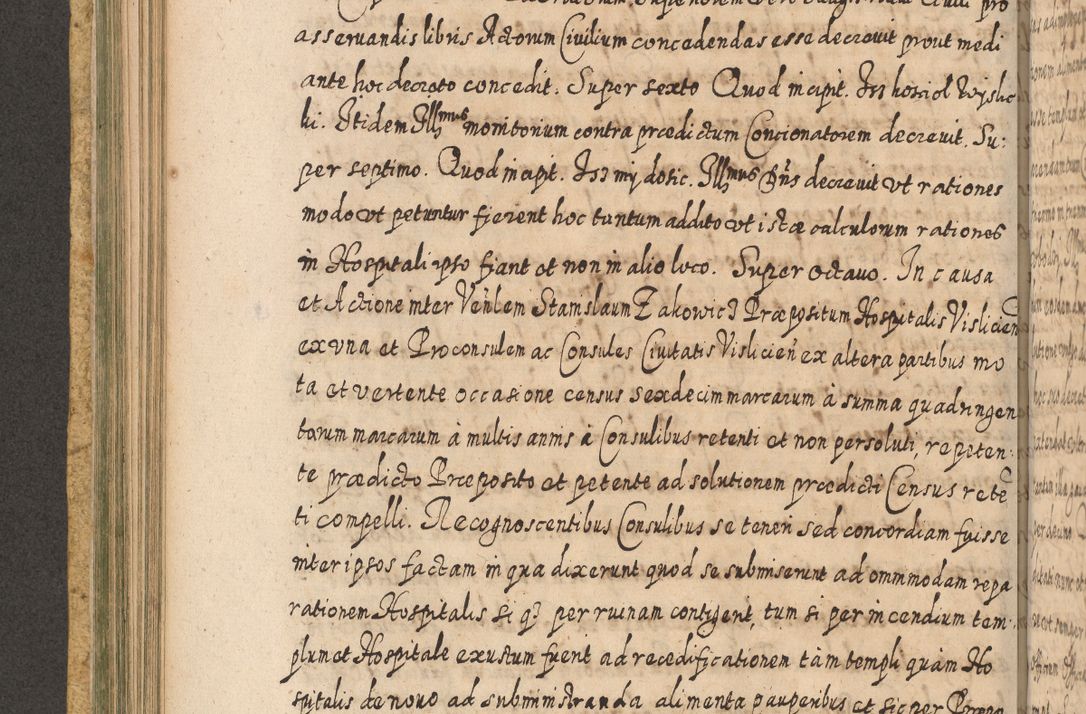 asseruandis libris Actorum Ciuilium concedendas esse decreuit prout medi
ante hoc decreto concedit. Super sexto Quod incipit. Isz kosciol Wislic
ki. Itidem Illmus monitorium contra prædictum Concionatorem decreuit. Su:
per septimo. Quod incipit. Isz my dosic. Illmus Dn̄s decreuit vt rationes
modo vt petuntur fierent hoc tantum addito vt istæ calculorum rationes
in Hospitali ipso fiant et non in alio loco. Super octauo. In causa
et Actione inter Ven̄lem Stanislaum Zakowicz Præpositum Hospitalis Vislicien̄
ex vna et Proconsulem ac Consules Ciuitatis Vislicien̄ ex altera partibus mo
ta et vertente occasione census sexdecim marcarum à summa quadringen
torum marcarum à multis annis à Consulibus retenti et non persoluti, repeten:
te prædicto Præposito et petente ad solutionem prædicti Census retē
ti compelli. Recognoscentibus Consulibus se teneri sed concordiam fuisse
inter ipsos factam in qua dixerunt quod se submiserunt ad omnimodam repa
rationem Hospitalis si q3 per ruinam contigerit, tum si per incendium tem:
plum et Hospitale exustum fuerit ad reædificationem tàm templi quàm Ho
spitalis de nouo ad subministranda alimenta pauperibus et sic per Præpo